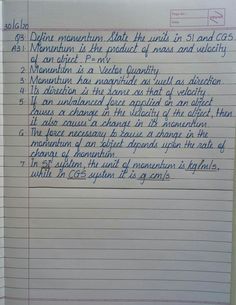 30/6/20
Q3 Define momentum. State the units in SI and CGS.
A3) 1 Momentum is the product of mass and velocity
of an object. P=mv
2 Momentum is a Vector Quantity.
3 Momentum has magnitude as well as direction.
4 Its direction is the same as that of velocity.
5 If an unbalanced force applied on an object
causes a change in the velocity of the object, then
it also causes a change in its momentum.
6 The force necessary to cause a change in the
momentum of an object depends upon the rate of
change of momentum.
7 In SI system, the unit of momentum is kg m/s,
while in CGS system it is g cm/s.